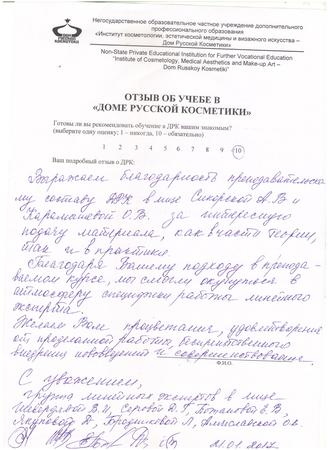 Негосударственное образовательное частное учреждение дополнительного
профессионального образования
«Институт косметологии, эстетической медицины и визажного искусства –
Дом Русской Косметики»
Non-State Private Educational Institution for Further Vocational Education
"Institute of Cosmetology, Medical Aesthetics and Make-up Art –
Dom Russkoy Kosmetiki"
ОТЗЫВ ОБ УЧЕБЕ В
«ДОМЕ РУССКОЙ КОСМЕТИКИ»
Готовы ли вы рекомендовать обучение в ДРК вашим знакомым?
(выберите одну оценку; 1 – никогда, 10 – обязательно)
1 2 3 4 5 6 7 8 9 10
Ваш подробный отзыв о ДРК:
Выражаем благодарность преподавательско
му составу ДРК в лице Сикорской А.В и
О.В. за интересную
подачу материала, как в части теории,
так и в практике.
Благодаря Вашему подходу в препода-
ваемом курсе, мы смогли окунуться в
атмосферу специфики работы линейного
эксперта.
Желаем Вам процветания, удовлетворения
от проделанной работы, беспрепятственного
внедрения нововведений и совершенствования
Ф.И.О.
С уважением,
группа линейных экспертов в лице
В.Н, Серовой Е.В,
Якуповой Л,